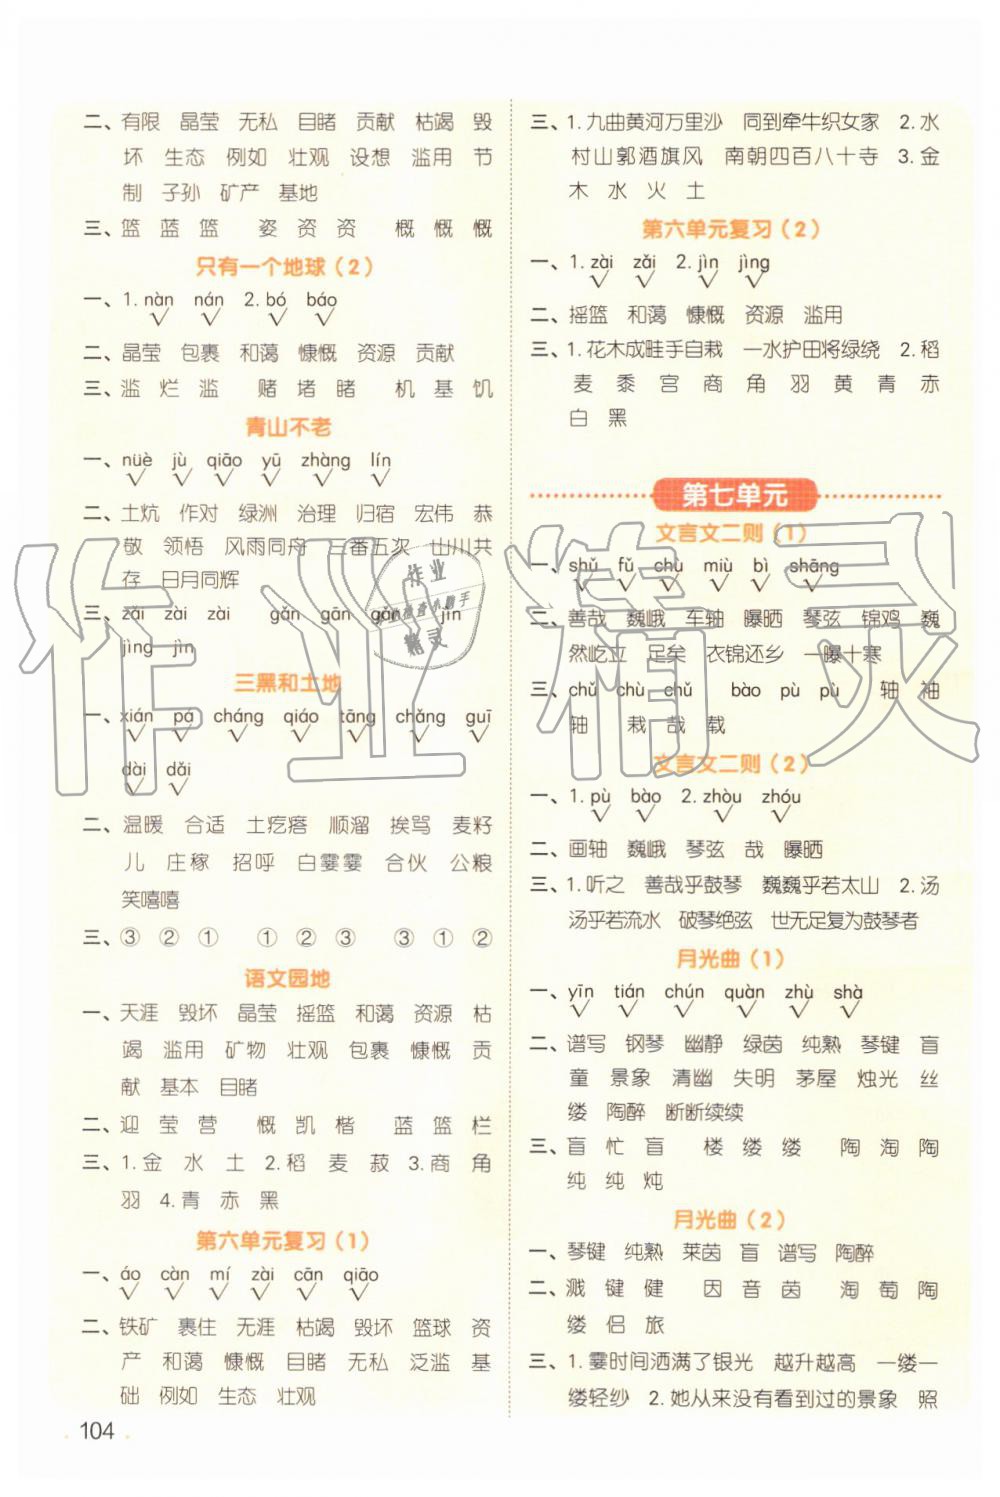 二、有限 晶莹 无私 目睹 贡献 枯竭 毁
坏 生态 例如 壮观 设想 滥用 节
制 子孙 矿产 基地
三、篮 蓝 篮 姿 资 资 概 慨 慨
只有一个地球（2）
一、1. nàn nán 2. bó báo
√ √ √ √
二、晶莹 包裹 和蔼 慷慨 资源 贡献
三、滥 烂 滥 赌 堵 睹 机 基 饥
青山不老
一、nüè jù qiāo yū zhàng lín
√ √ √ √ √ √
二、土炕 作对 绿洲 治理 归宿 宏伟 恭
敬 领悟 风雨同舟 三番五次 山川共
存 日月同辉
三、zǎi zài zài gǎn gān gǎn jìn
jìng jìn
三黑和土地
一、xián pá cháng qiáo tāng chǎng guī
√ √ √ √ √ √ √
dài dǎi
√ √
二、温暖 合适 土疙瘩 顺溜 挨骂 麦籽
儿 庄稼 招呼 白霎霎 合伙 公粮
笑嘻嘻
三、③ ② ① ① ② ③ ③ ① ②
语文园地
一、天涯 毁坏 晶莹 摇篮 和蔼 资源 枯
竭 滥用 矿物 壮观 包裹 慷慨 贡
献 基本 目睹
二、迎 莹 营 慨 凯 楷 蓝 篮 栏
三、1. 金 水 土 2. 稻 麦 菽 3. 商 角
羽 4. 青 赤 黑
第六单元复习（1）
一、áo càn mí zài cān qiāo
√ √ √ √ √ √
二、铁矿 裹住 无涯 枯竭 毁坏 篮球 资
产 和蔼 慷慨 目睹 无私 泛滥 基
础 例如 生态 壮观
104
三、1. 九曲黄河万里沙 同到牵牛织女家 2. 水
村山郭酒旗风 南朝四百八十寺 3. 金
木 水 火 土
第六单元复习（2）
一、1. zài zǎi 2. jìn jìng
√ √ √ √
二、摇篮 和蔼 慷慨 资源 滥用
三、1. 花木成畦手自栽 一水护田将绿绕 2. 稻
麦 黍 宫 商 角 羽 黄 青 赤
白 黑
第七单元
文言文二则（1）
一、shǔ fǔ chù miù bì shāng
√ √ √ √ √ √
二、善哉 巍峨 车轴 曝晒 琴弦 锦鸡 巍
然屹立 足矣 衣锦还乡 一曝十寒
三、chǔ chù chǔ bào pù pù 轴 袖
轴 栽 哉 载
文言文二则（2）
一、1. pù bào 2. zhòu zhóu
√ √ √ √
二、画轴 巍峨 琴弦 哉 曝晒
三、1. 听之 善哉乎鼓琴 巍巍乎若太山 2. 汤
汤乎若流水 破琴绝弦 世无足复为鼓琴者
月光曲（1）
一、yīn tián chún quàn zhù shà
√ √ √ √ √ √
二、谱写 钢琴 幽静 绿茵 纯熟 琴键 盲
童 景象 清幽 失明 茅屋 烛光 丝
缕 陶醉 断断续续
三、盲 忙 盲 楼 缕 缕 陶 淘 陶
纯 纯 炖
月光曲（2）
一、琴键 纯熟 莱茵 盲 谱写 陶醉
二、溅 键 健 因 音 茵 淘 萄 陶
缕 侣 旅
三、1. 霎时间洒满了银光 越升越高 一缕一
缕轻纱 2. 她从来没有看到过的景象 照
作业精灵
作业
检查小助手
精灵